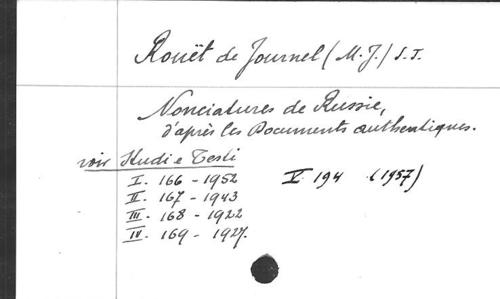 Rouët de Journel (M.J.) S.J.
Nonciatures de Russie,
d'après les Documents authentiques.
voir Studi e Testi
I. 166 - 1952
V. 194 (1957)
II. 167 - 1943
III. 168 - 1922
IV. 169 - 1927.